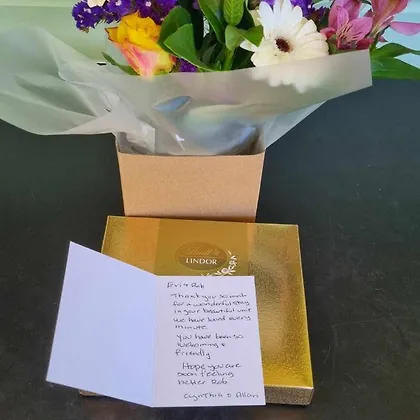 Lindt
LINDOR
Evi & Rob
Thank you so much
for a wonderful stay
in your beautiful unit
we have loved every
minute
you have been so
welcoming &
friendly
Hope you are
soon feeling
better Rob
Cynthia & Allan